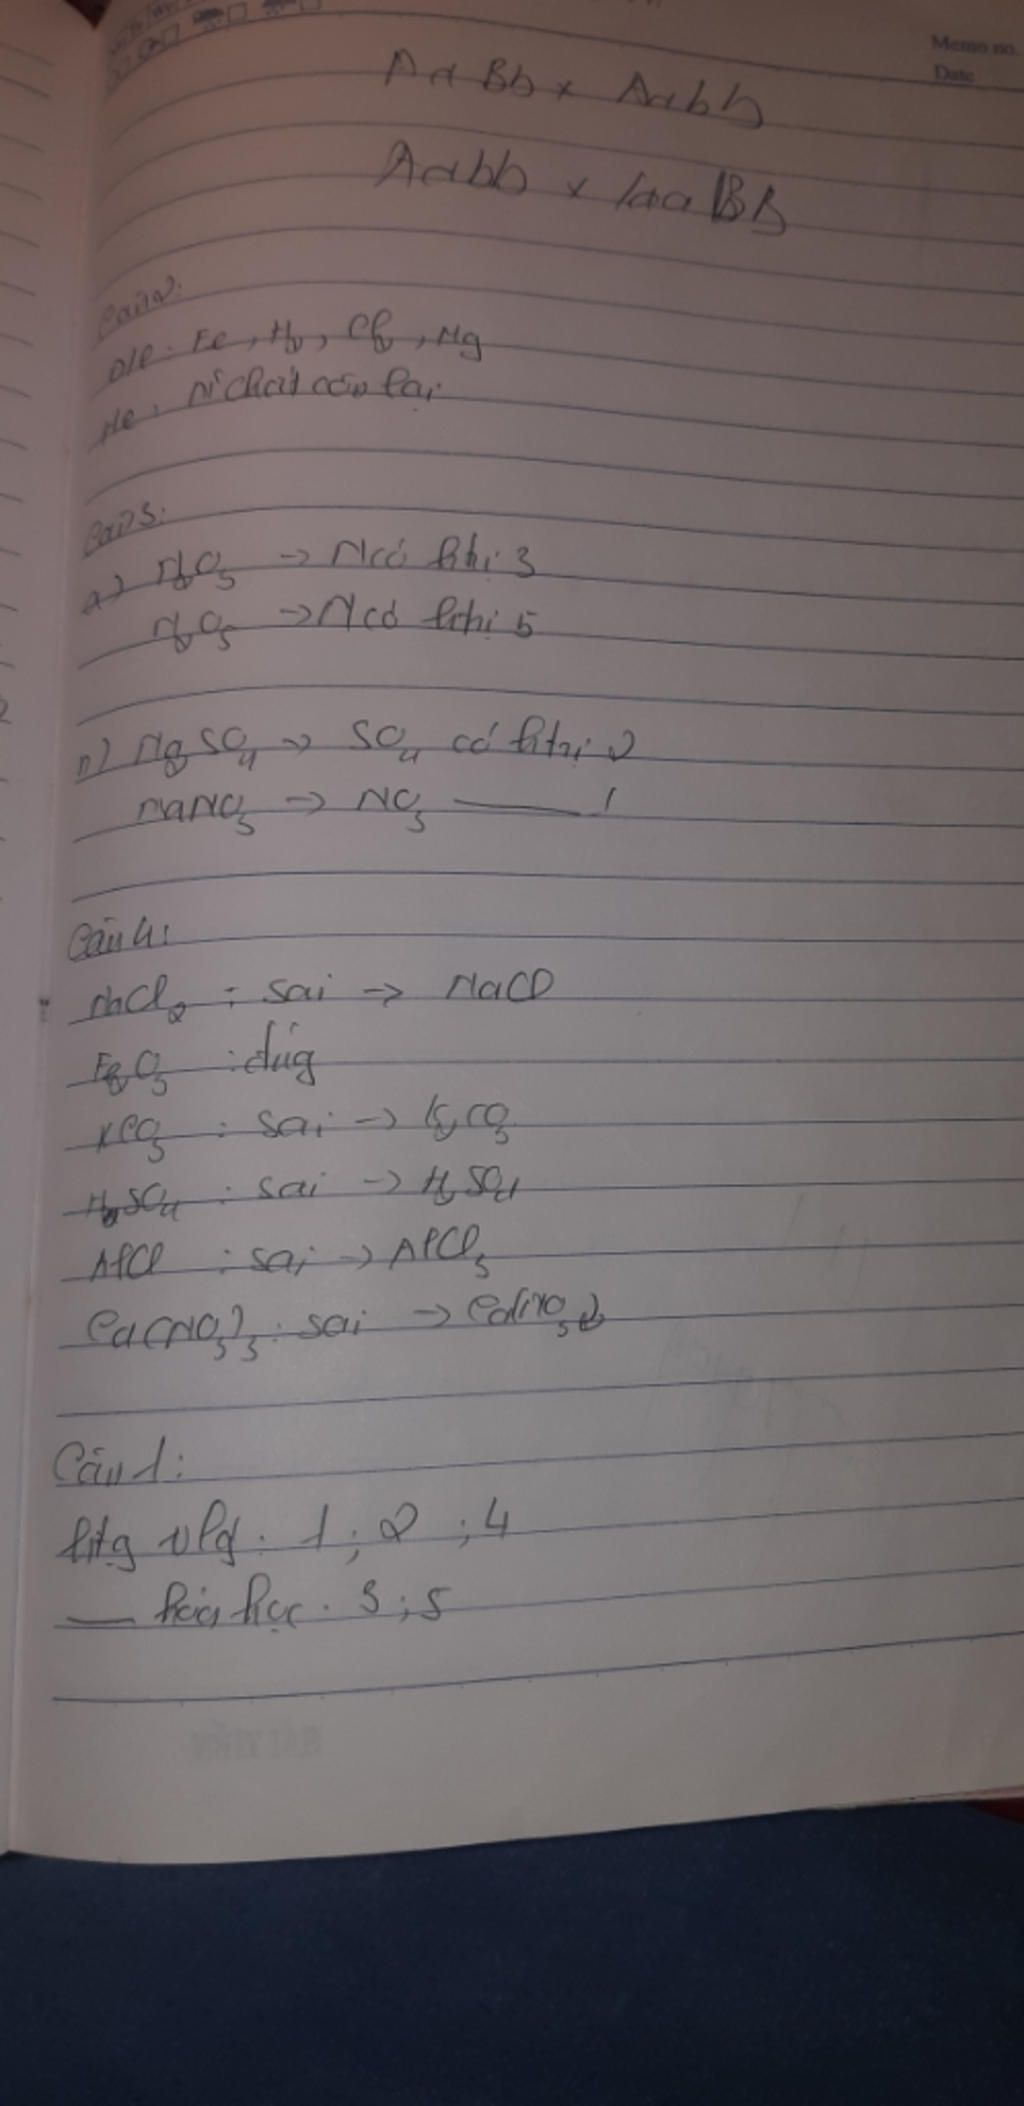 Memo no.
Date
AaBb x Aabb
Aabb x aaBB
Câu 2:
Đ/c: Fe, H₂, Cl₂, Mg
H/c: chất còn lại
Câu 3:
a) N₂O₃ → N có htrị 3
N₂O₅ → N có htrị 5
b) MgSO₄ → SO₄ có htrị 2
NaNO₃ → NO₃ — 1
Câu 4:
NaCl₂ : sai → NaCl
Fe₂O₃ : đúg
KCO₃ : sai → K₂CO₃
SO₄ : sai → H₂SO₄
AlCl : sai → AlCl₃
Ca(NO₃)₃ : sai → Ca(NO₃)₂
Câu 1:
htg vlý : 1 ; 2 ; 4
— hóa học : 3 ; 5